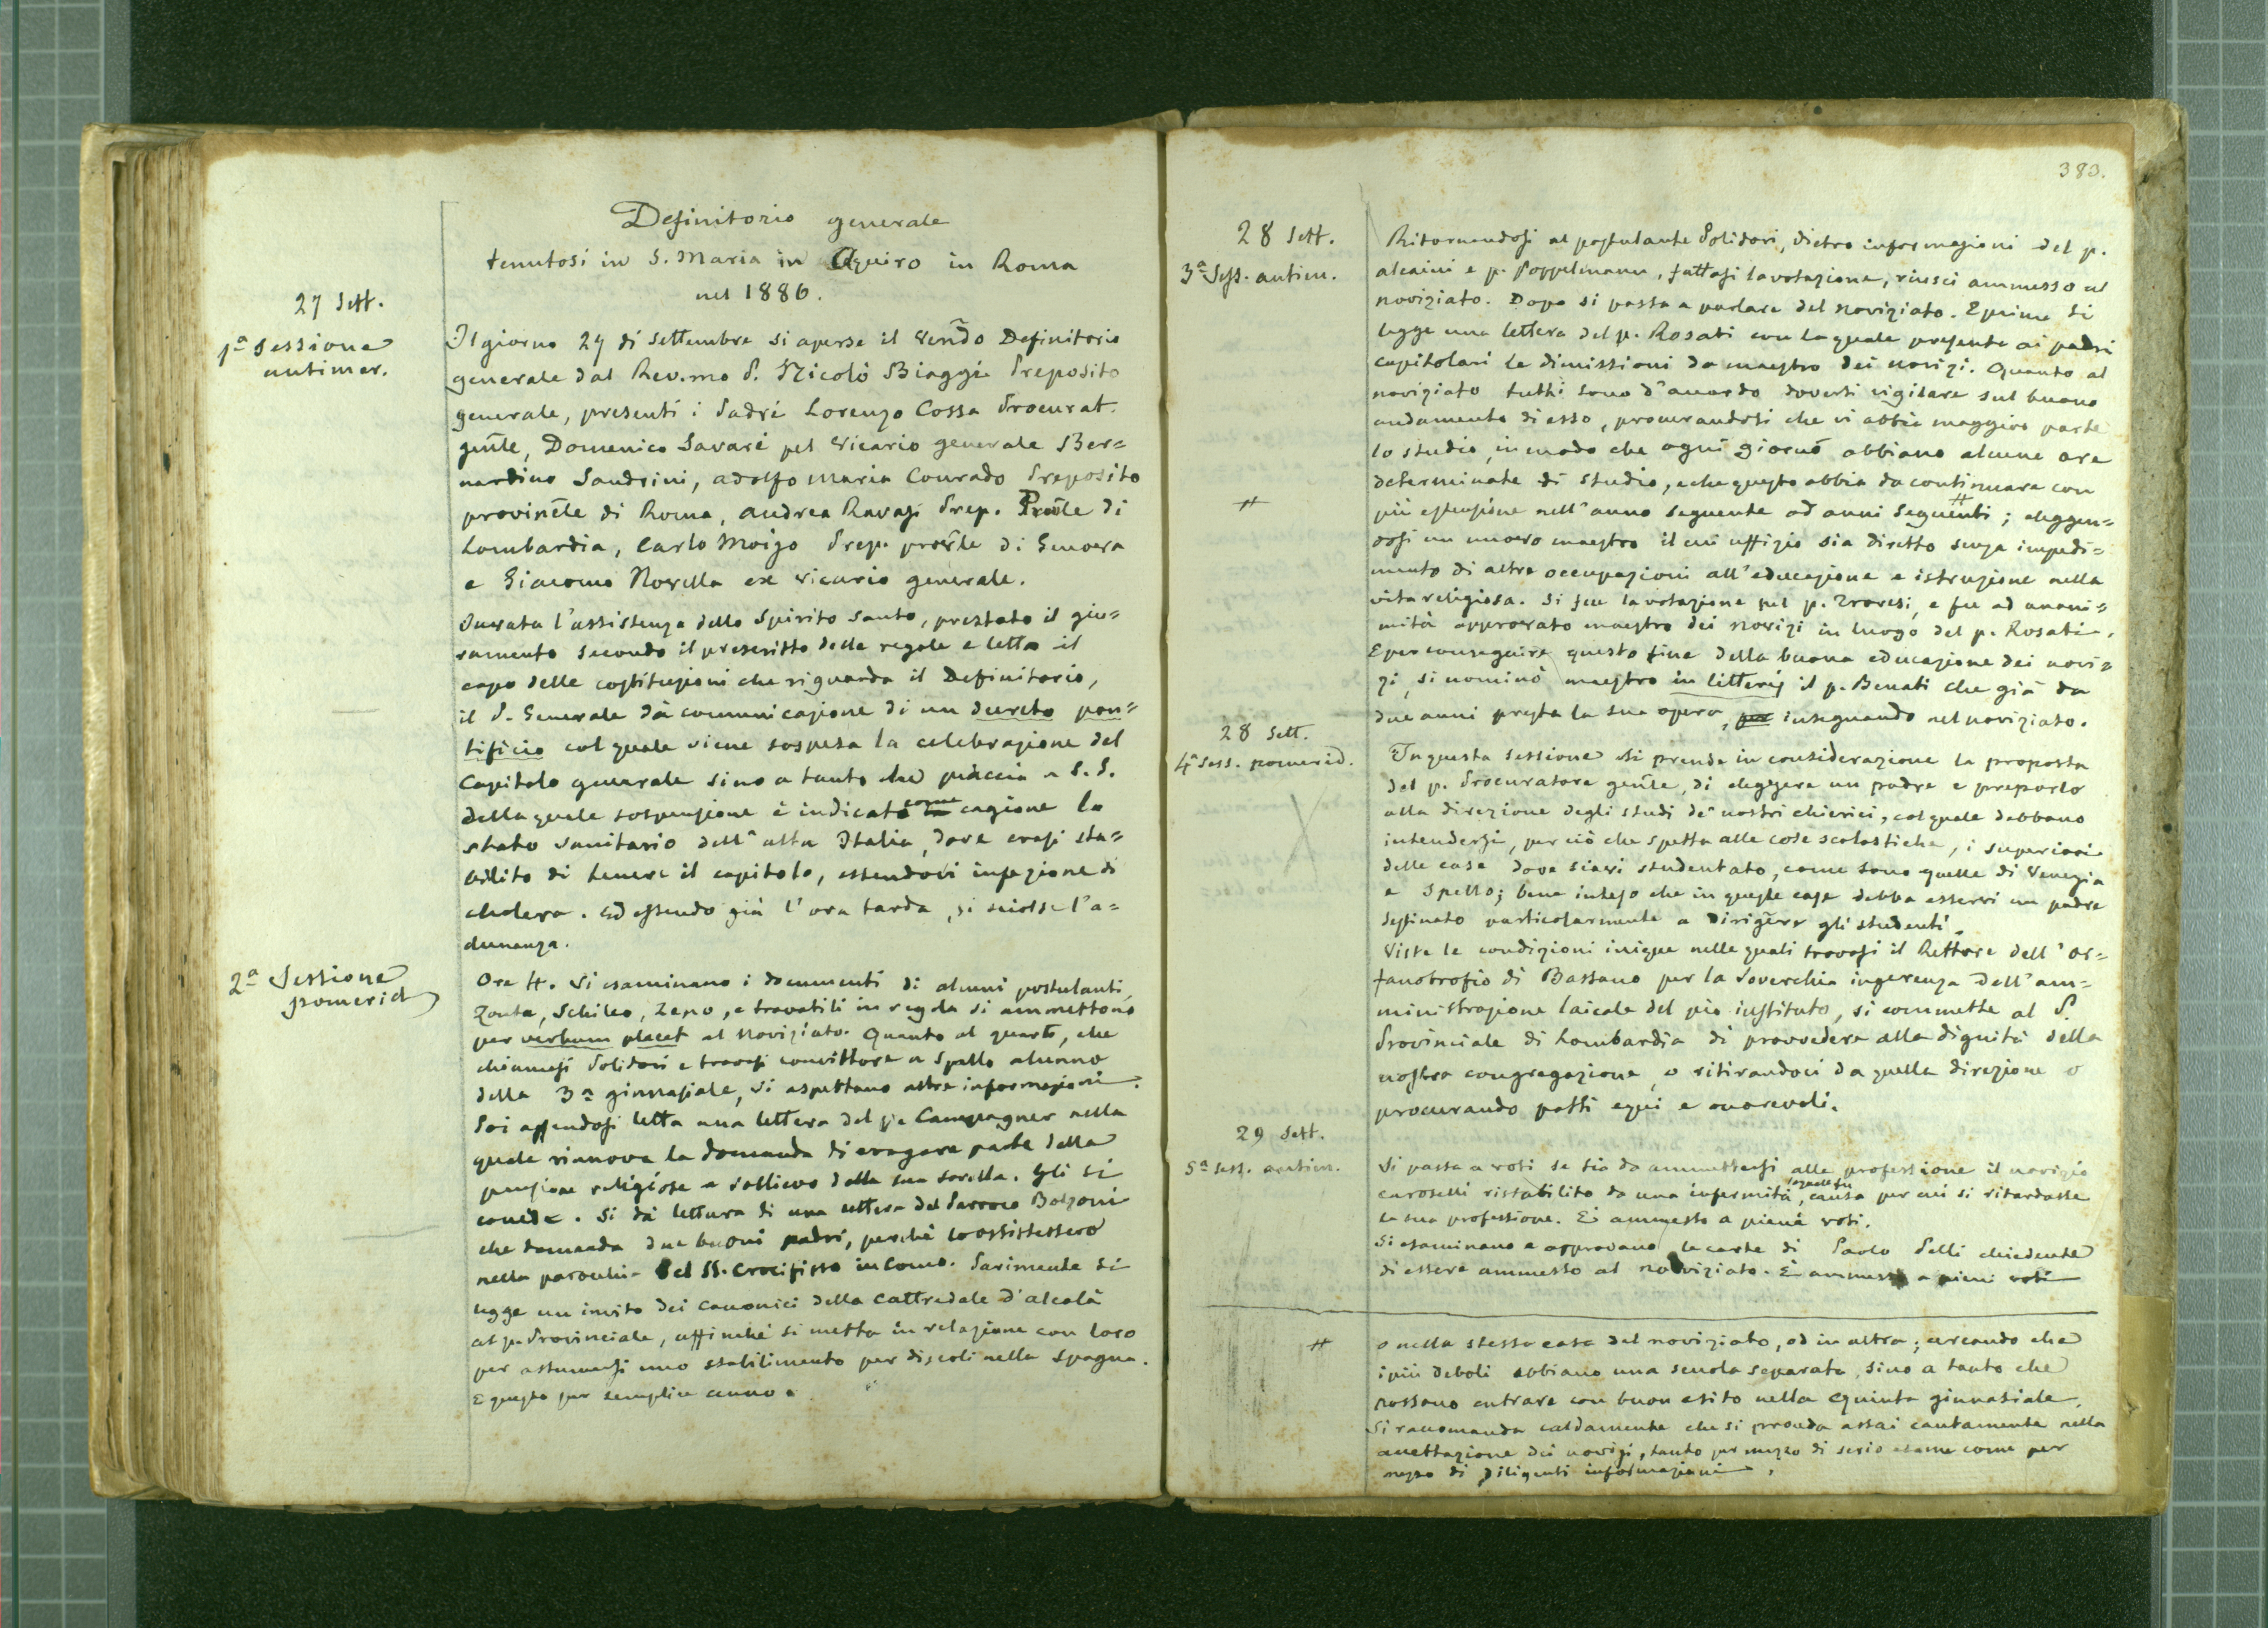 Definitorio generale
tenutosi in S. Maria in Aquiro in Roma
nel 1886.
27 Sett.
1ª Sessione
antimer.
Il giorno 27 di settembre si aperse il Vendo Definitorio
generale dal Rev.mo P. Nicolò Biaggi Preposito
generale, presenti i Padri Lorenzo Cossa Procurat.
gnle, Domenico Savarè pel Vicario generale Ber=
nardino Sandrini, Adolfo Maria Conrado Preposito
provincle di Roma, Andrea Ravasi Prep. Prole di
Lombardia, Carlo Moizo Prep. provle di Genova
e Giacomo Novella ex Vicario generale.
Invocata l'assistenza dello Spirito Santo, prestato il giu=
ramento secondo il prescritto delle regole e letto il
capo delle costituzioni che riguarda il Definitorio,
il P. Generale dà comunicazione di un decreto pon=
tificio col quale viene sospesa la celebrazione del
Capitolo generale sino a tanto che piaccia a S. S.
della quale sospensione è indicato come cagione lo
stato sanitario dell'alta Italia, dove erasi sta=
bilito di tenere il capitolo, essendovi infezione di
cholera. Ed essendo già l'ora tarda, si sciolse l'a=
dunanza.
2ª Sessione
pomerid
Ore 4. Si esaminano i documenti di alcuni postulanti,
Zonta, Schileo, Zeno, e trovatili in regola si ammettono
per verbum placet al Noviziato. Quanto al quarto, che
chiamasi Polidori e trovasi convittore a Spello alunno
della 3ª ginnasiale, si aspettano altre informazioni.
Poi essendosi letta una lettera del p. Campagner nella
quale rinnova la domanda di erogare parte della
pensione religiosa a sollievo della sua sorella. Gli si
concede. Si dà lettura di una lettera del Parroco Bolzoni
che domanda due buoni padri, perchè lo assistessero
nella parocchia del SS. Crocifisso in Como. Parimente si
legge un invito dei Canonici della Cattredale d'Alcalà
al p. Provinciale, affinchè si metta in relazione con loro
per assumersi uno stabilimento per discoli nella Spagna.
E questo per semplice cenno.
383.
28 Sett.
3ª Sess. antim.
Ritornandosi al postulante Polidori, dietro informazioni del p.
Alcaini e p. Poppelmann, fattasi la votazione, riuscì ammesso al
noviziato. Dopo si passa a parlare del Noviziato. E prima si
legge una lettera del p. Rosati con la quale presenta ai padri
capitolari le dimissioni da maestro dei novizi. Quanto al
noviziato tutti sono d'accordo doversi vigilare sul buono
andamento di esso, procurandosi che vi abbia maggior parte
lo studio, in modo che ogni giorno abbiano alcune ore
determinate di studio, e che questo abbia da continuare con
#
più estensione nell'anno seguente od anni seguenti #; eleggen=
dosi un nuovo maestro il cui uffizio sia diretto senza impedi=
mento di altre occupazioni all'educazione e istruzione nella
vita religiosa. Si fece la votazione pel p. , e fu ad unani=
mità approvato maestro dei novizi in luogo del p. Rosati.
E per conseguire questo fine della buona educazione dei novi=
zi, si nominò maestro in litteris il p. Benati che già da
due anni presta la sua opera, per insegnando nel noviziato.
28 Sett.
4ª Sess. pomerid.
In questa sessione si prende in considerazione la proposta
del p. Procuratore gnle, di eleggere un padre e preporlo
alla direzione degli studi de' nostri chierici, col quale debbano
intendersi, per ciò che spetta alle cose scolastiche, i superiori
delle case dove siavi studentato, come sono quelle di Venezia
e Spello; bene inteso che in queste case debba esservi un padre
destinato particolarmente a dirigere gli studenti.
Viste le condizioni inique nelle quali trovasi il Rettore dell'or=
fanotrofio di Bassano per la soverchia ingerenza dell'am=
ministrazione laicale del pio instituto, si commette al P.
Provinciale di Lombardia di provvedere alla dignità della
nostra congregazione, o ritirandoci da quella direzione o
procurando patti equi e onorevoli.
29 Sett.
5ª Sess. antim.
Si passa a voti se sia da ammettersi alla professione il novizio
Caroselli ristabilito da una infermità, la quale fu causa per cui si ritardasse
la sua professione. È ammesso a pieni voti.
Si esaminano e approvano le carte di Paolo Pelli chiedente
di essere ammesso al noviziato. È ammesso a pieni voti
#
o nella stessa casa del noviziato, od in altra; cercando che
i più deboli abbiano una scuola separata, sino a tanto che
possano entrare con buon esito nella quinta ginnasiale.
Si raccomanda caldamente che si proceda assai cautamente nella
accettazione dei novizi, tanto per mezzo di serio esame come per
mezzo di diligenti informazioni.